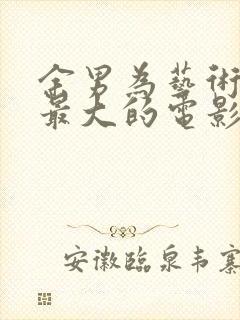 金男為藝術
最大的電影
安徽臨泉韦寨